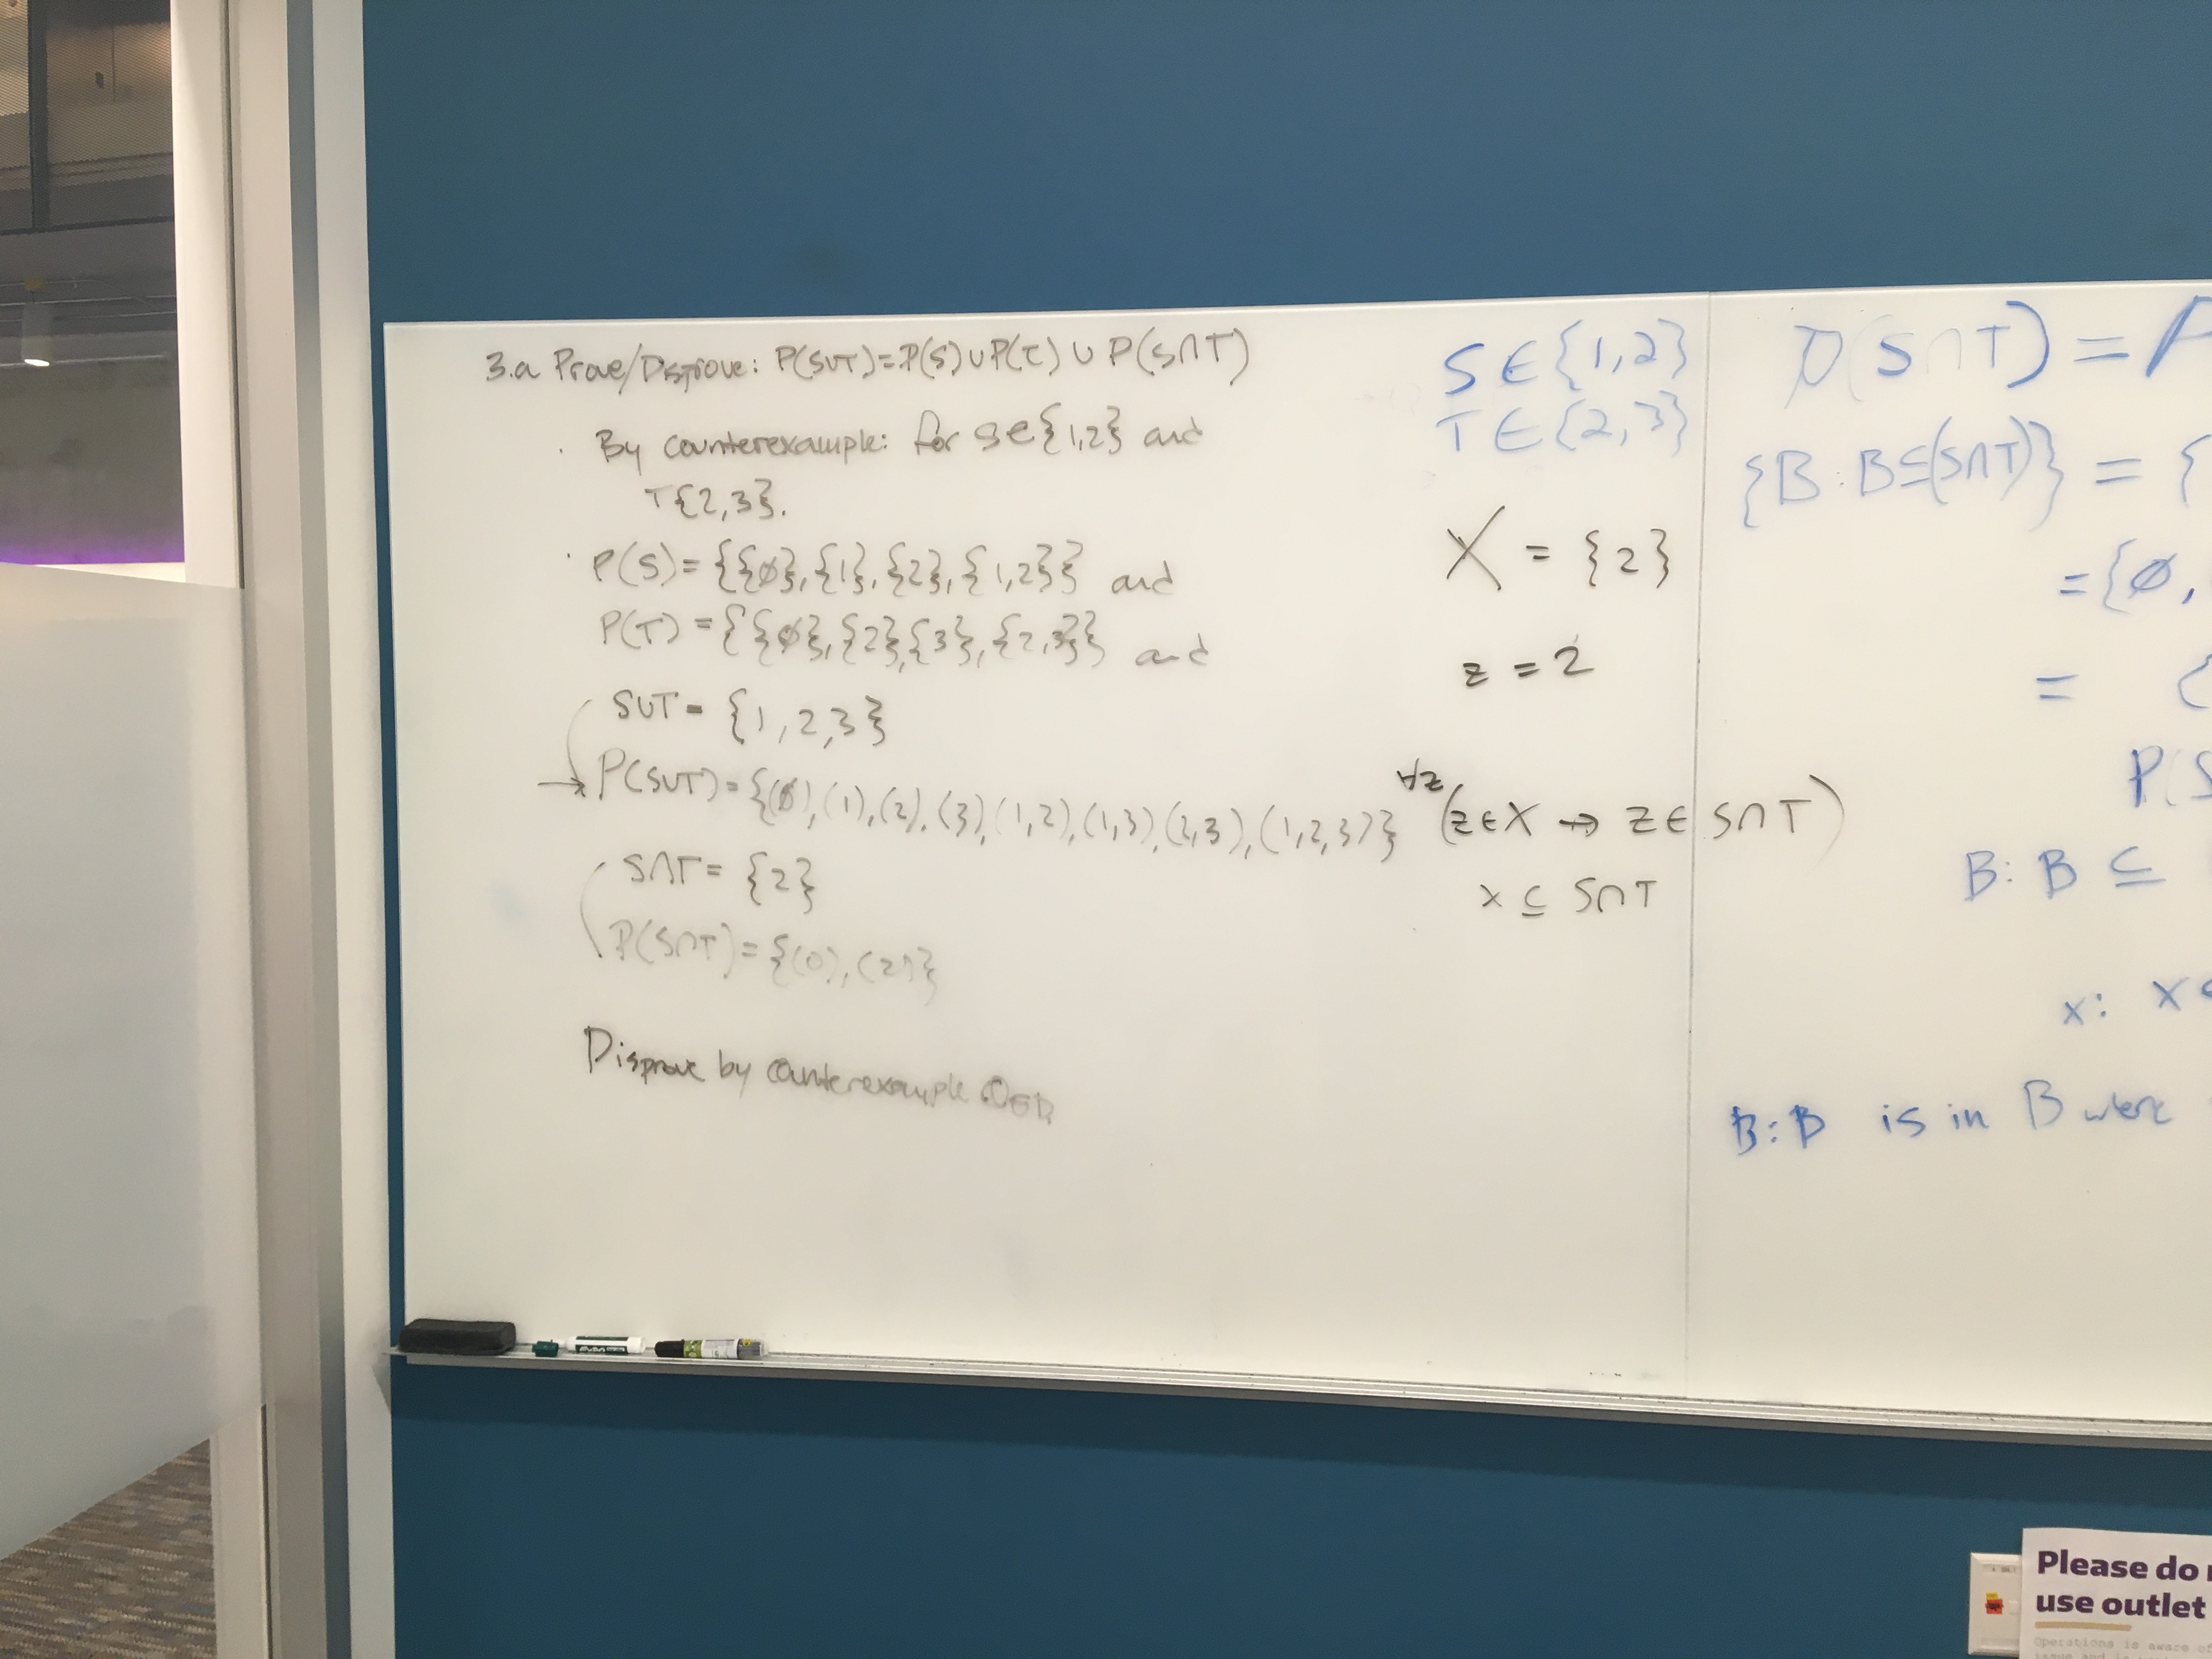 3.a Prove/Disprove: P(S∪T)=P(S)∪P(T)∪P(S∩T)
By counterexample: for S∈{1,2} and
T{2,3}.
P(S)={{∅},{1},{2},{1,2}} and
P(T)={{∅},{2},{3},{2,3}} and
S∪T={1,2,3}
→ P(S∪T)={(∅),(1),(2),(3),(1,2),(1,3),(2,3),(1,2,3)}
S∩T={2}
P(S∩T)={(∅),(2)}
Disprove by counterexample QED
S∈{1,2}
T∈{2,3}
X={2}
z=2
∀z(z∈X→z∈S∩T)
x⊆S∩T
P(S∩T)=P
{B:B⊆(S∩T)}={
={∅,
=
P(S
B:B⊆
x: x
B:B is in B where
Please do
use outlet
Operations is aware of